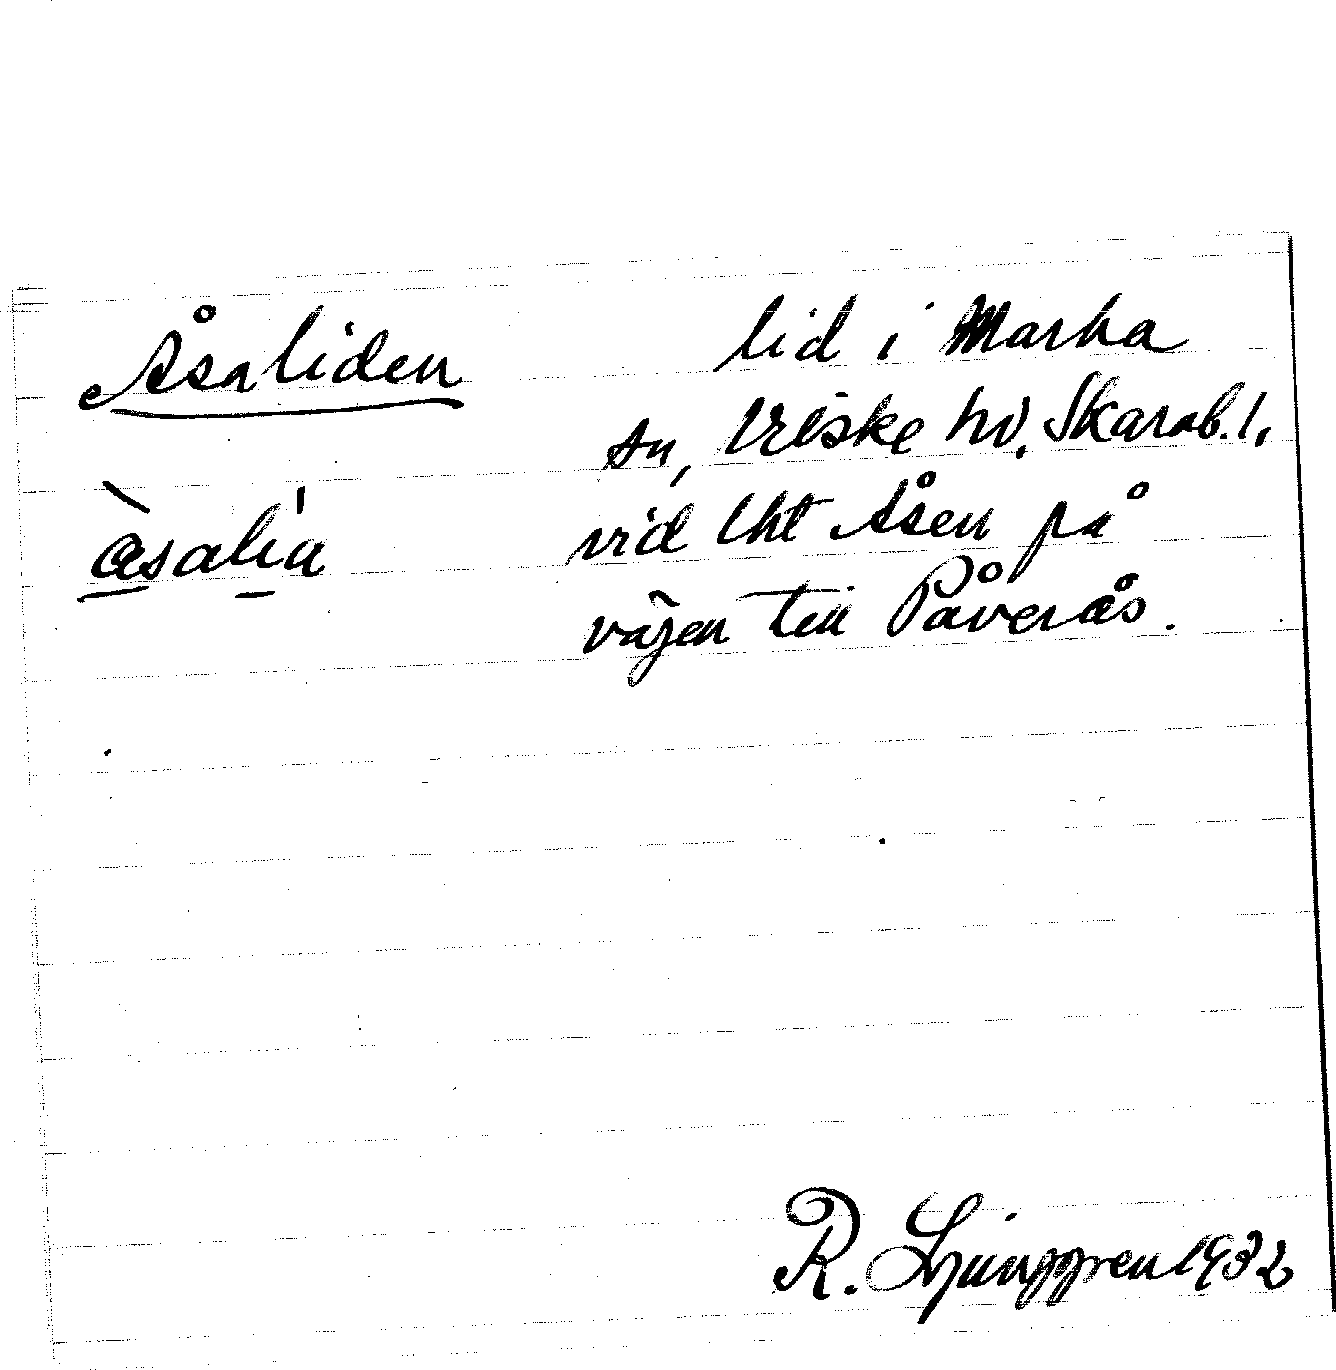 Åsaliden lid i Marka
sn, Vilske hd. Skarab. l.
vid lht Åsen på
àsalia
vägen till Påverås.
R. Ljunggren 1932